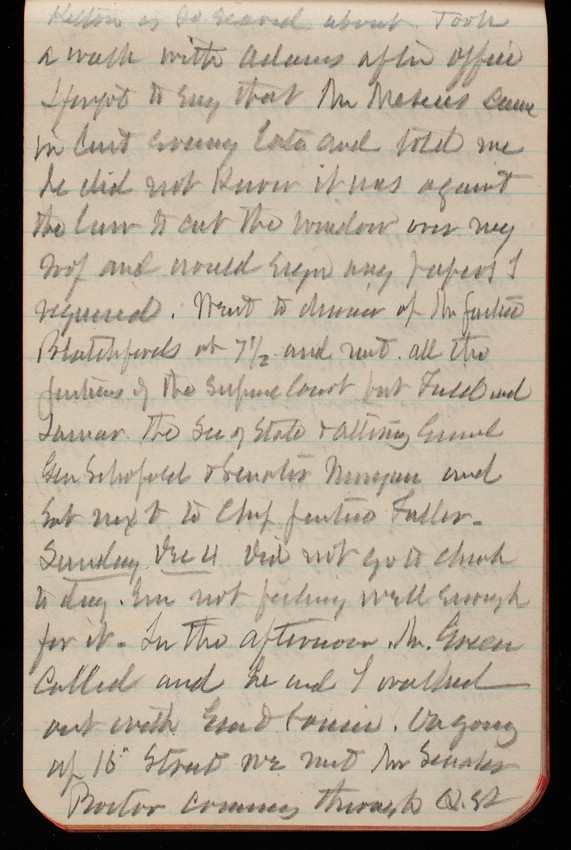 is so scared about. Took
a walk with Adams after office
I forgot to say that Mr came
in last evening late and told me
he did not know it was against
the law to cut the window over my
roof and would sign any papers I
required. Went to dinner of Mr Justice
Blatchfords at 7 1/2 and met all the
justices of the Supreme Court but Field and
Lamar the Sec of State & Attorney General
Gen Schofield & Senator Morgan and
Sat next to Chief Justice Fuller.
Sunday Dec 4 Did not go to church
to day. Em not feeling well enough
for it. In the afternoon Mr. Green
called and he and I walked
out with Em & . On going
up 16" Street we met Mr Senator
Proctor coming through Q. St